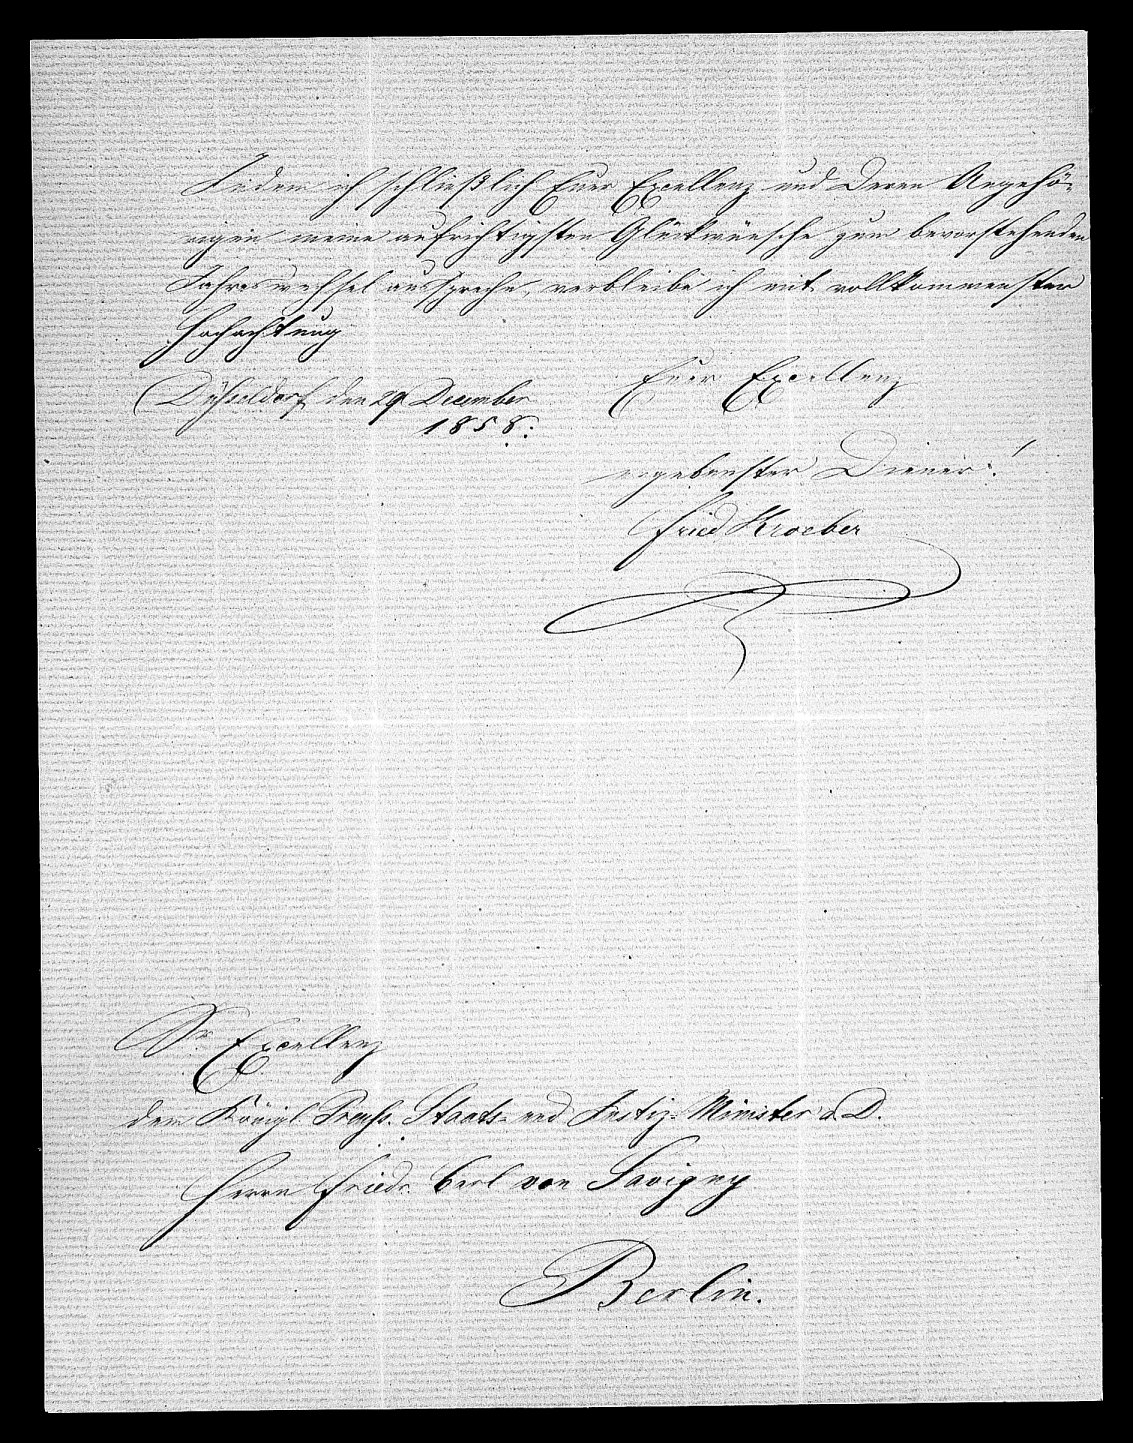 Indem ich schließlich Euer Excellenz und Deren Angehö-
rigen meine aufrichtigsten Glückwünsche zum bevorstehenden
Jahreswechsel ausspreche, verbleibe ich mit vollkommenster
Hochachtung
Euer Excellenz
Düsseldorf den 29 December
1858.
ergebenster Diener!
Fried Kroeber
Sr. Excellenz
dem Königl. Preuß. Staats- und Justiz-Minister a. D.
Herrn Friedr. Carl von Savigny
Berlin.